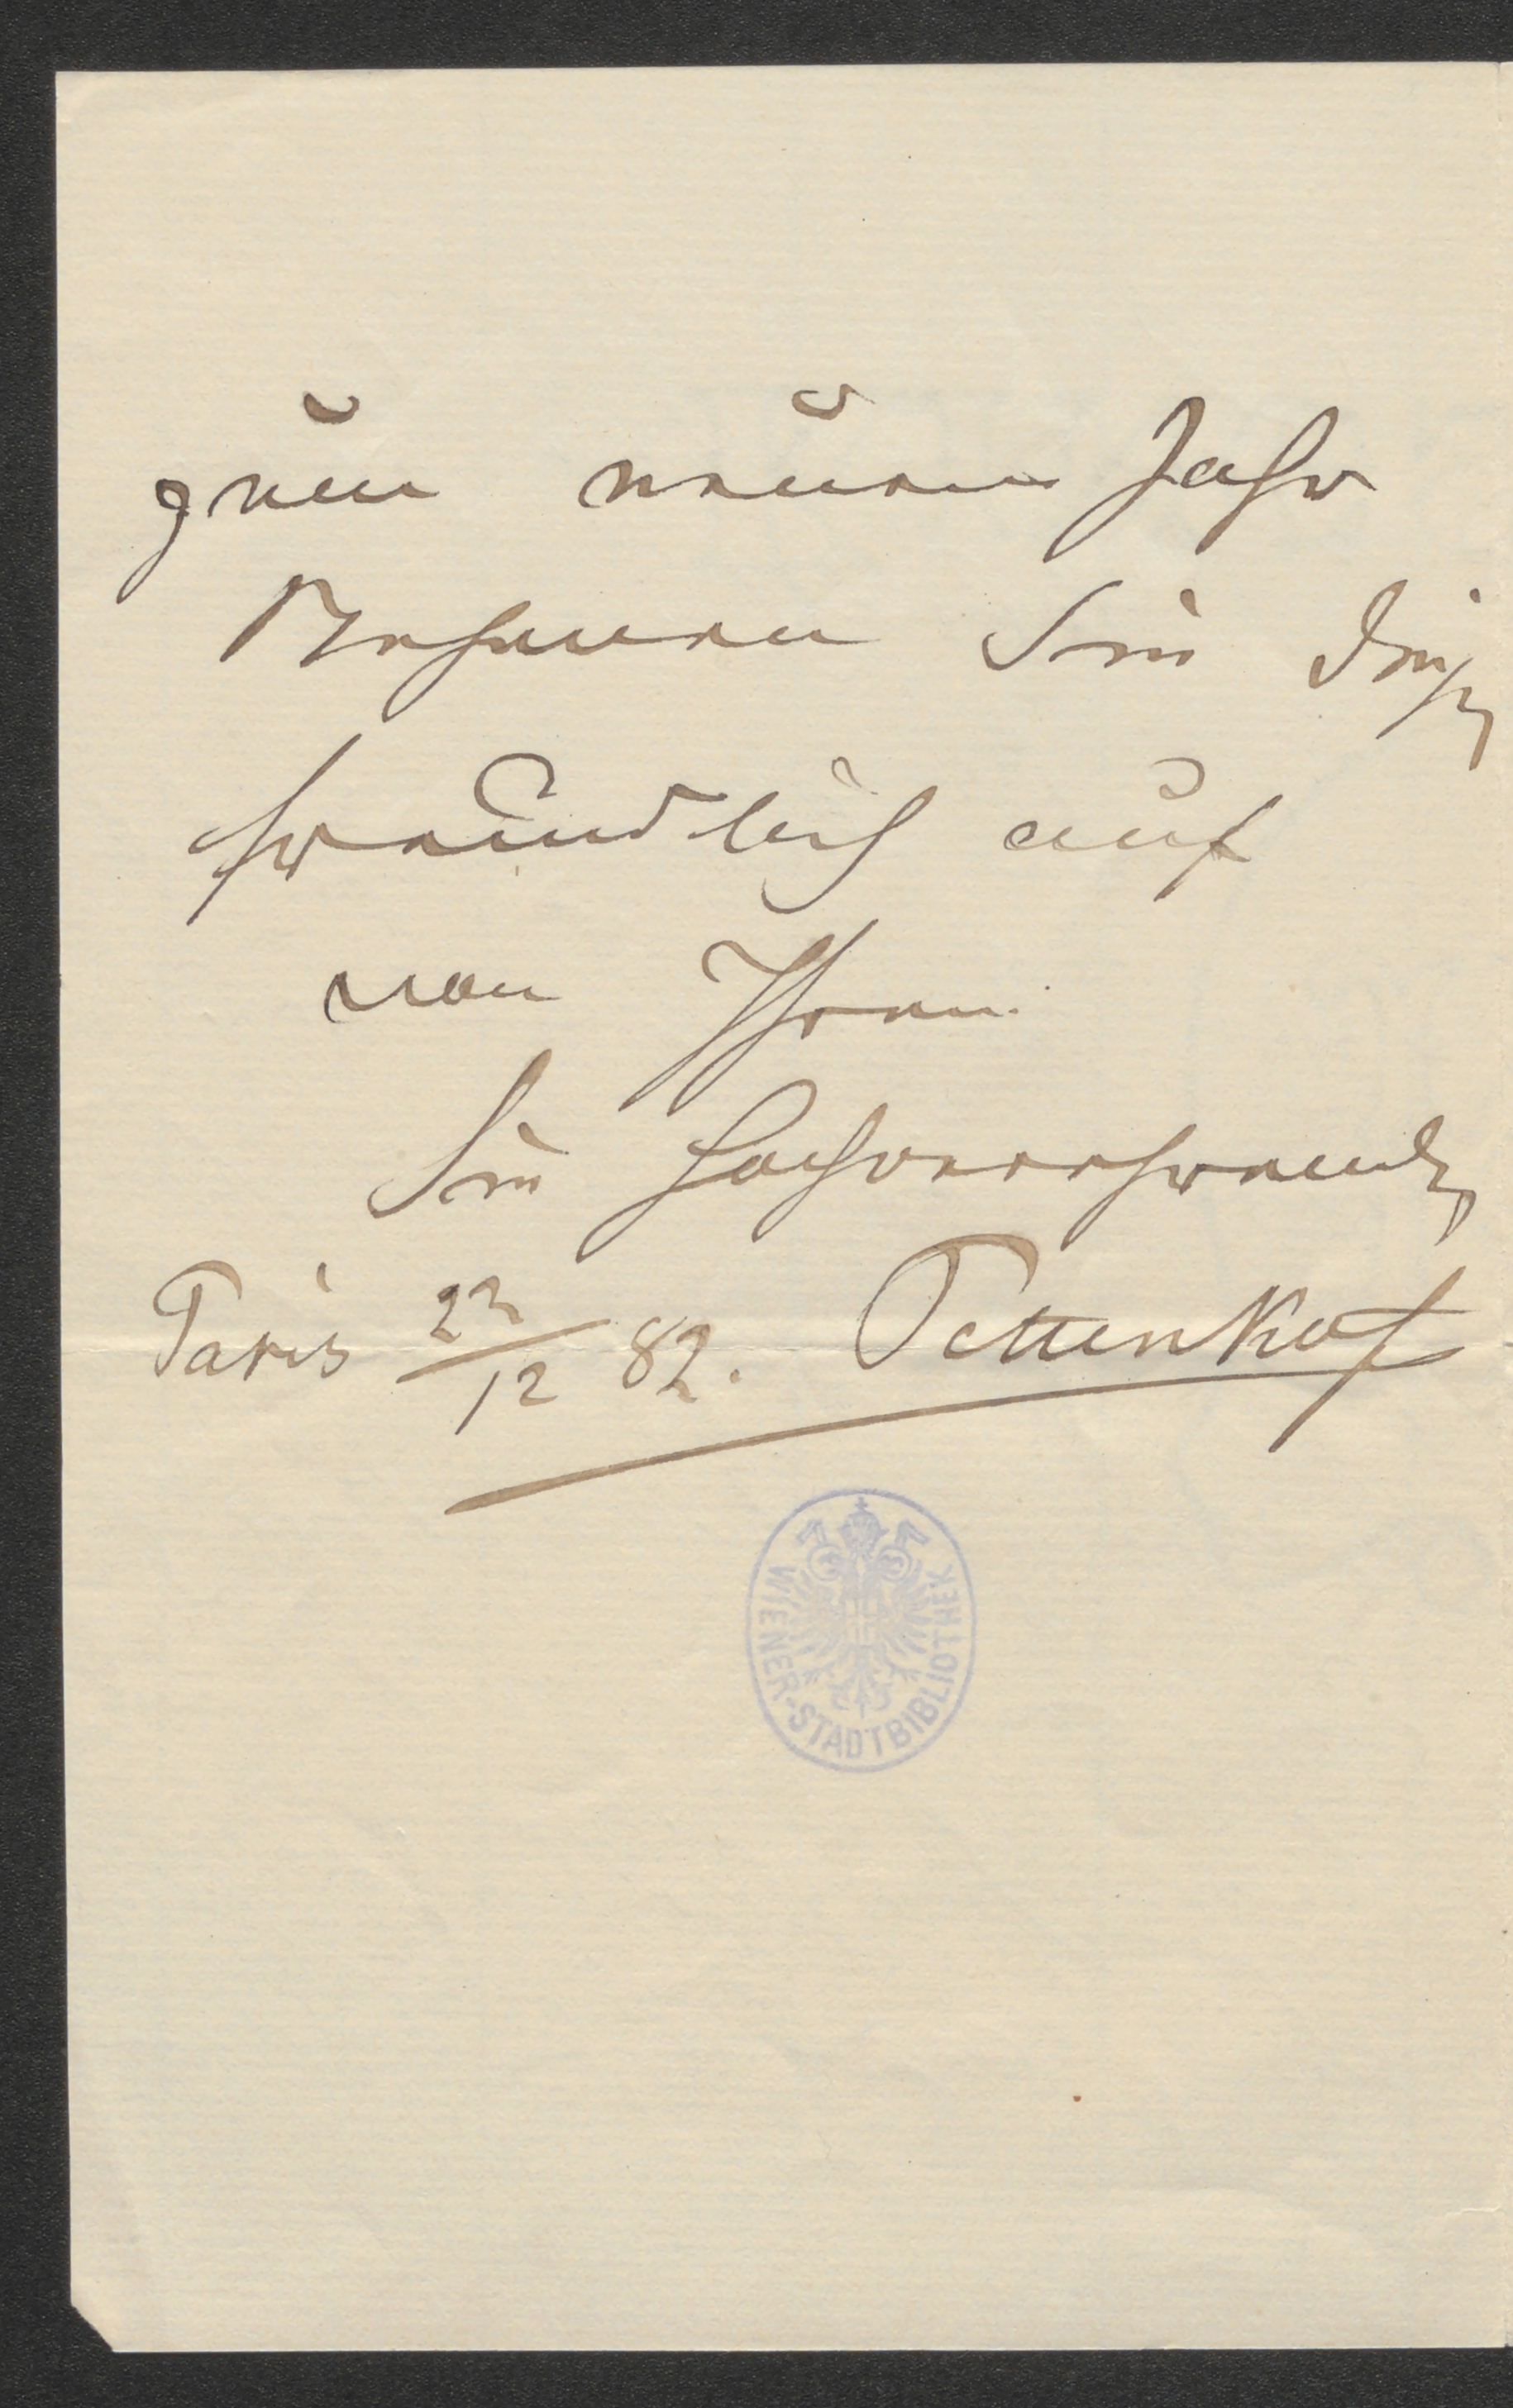 zum neuen Jahr
Nehmen Sie dieß
freundlich auf
von Ihrem
Sie hochverehrende
Paris 23/12 82. Pettenkof
WIENER-STADTBIBLIOTHEK